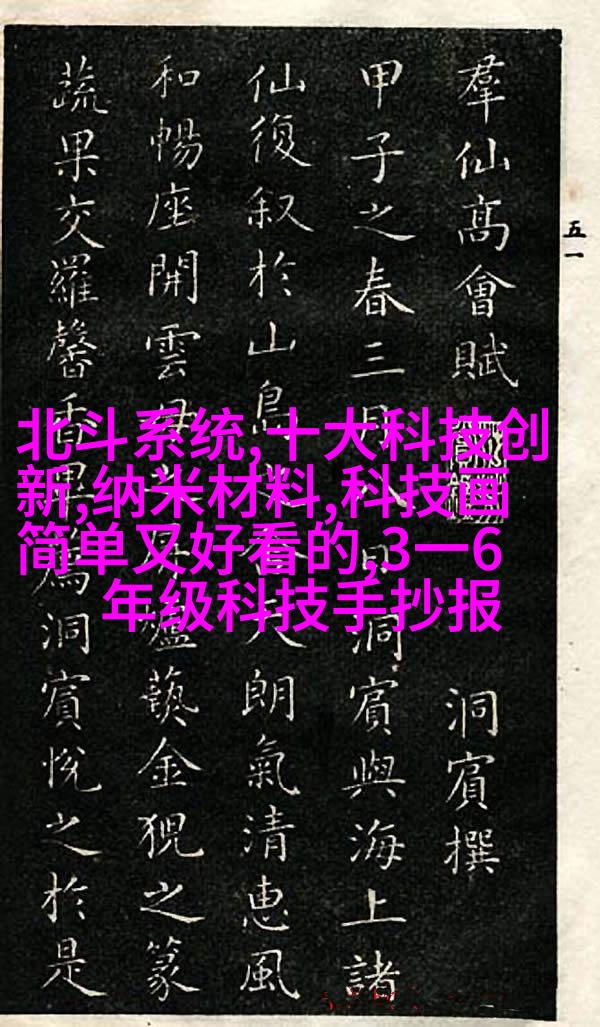 北斗系统,十大科技创
新,纳米材料,科技画
简单又好看的,3一6
年级科技手抄报
五一
羣仙高會賦
洞賓撰
甲子之春三月日洞賓與海上諸
仙復叙於山島天朗氣清惠風
和暢座開雲母爐藝金猊之篆
蔬果交羅馨香爲洞賓悅之於是